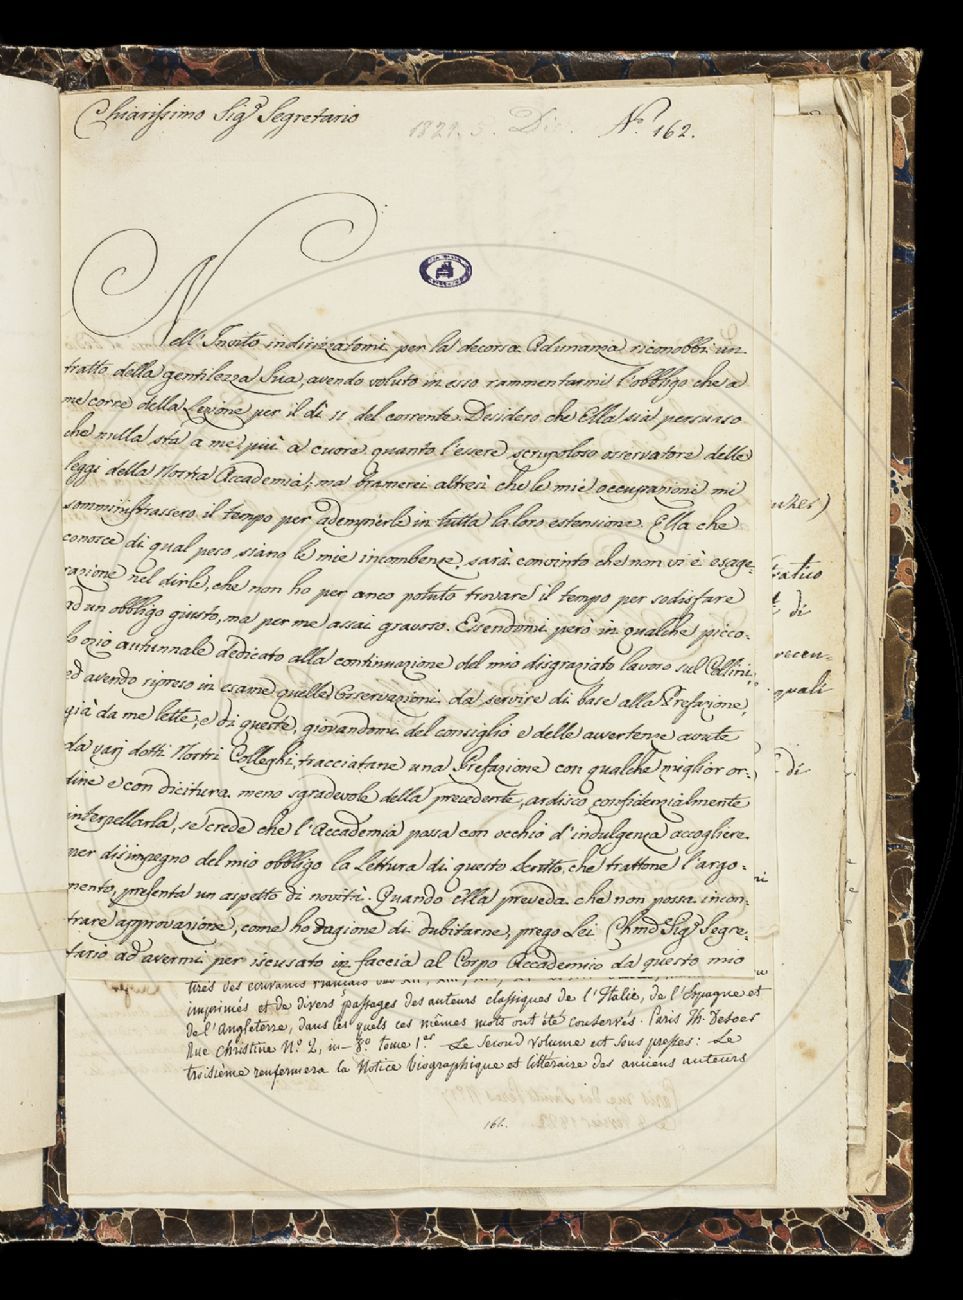 Chiarissimo Sig.r Segretario
1821. 5. Dic. N.o 162.
Nell'Invito indirizzatomi per la decorsa Adunanza riconobbi un
tratto della gentilezza Sua, avendo voluto in esso rammentarmi l'obbligo che a
me corre della Lezione per il dì 11 del corrente. Desidero che Ella sia persuaso
che nulla stà a me più a cuore quanto l'essere scrupoloso osservatore delle
leggi della Nostra Accademia; ma bramerei altresì che le mie occupazioni mi
somministrassero il tempo per adempierle in tutta la loro estensione. Ella che
conosce di qual peso siano le mie incombenze, sarà convinto che non vi è esage-
razione nel dirle, che non ho per anco potuto trovare il tempo per sodisfare
ad un obbligo giusto, ma per me assai gravoso. Essendomi però in qualche picco-
lo ozio autunnale dedicato alla continuazione del mio disgraziato lavoro sul Cellini,
ed avendo ripreso in esame quelle Osservazioni da servire di base alla Prefazione,
già da me lette, e di queste, giovandomi del consiglio e delle avvertenze avute
da varj dotti Nostri Colleghi, tracciatane una Prefazione con qualche miglior or-
dine e con dicitura meno sgradevole della precedente, ardisco confidenzialmente
interpellarla, se crede che l'Accademia possa con occhio d'indulgenza accogliere
per disimpegno del mio obbligo la Lettura di questo Scritto, che trattone l'argo-
mento, presenta un aspetto di novità. Quando Ella preveda che non possa incon-
trare approvazione, come ho ragione di dubitarne, prego Lei Chmo Sig.r Segre-
tario ad avermi per iscusato in faccia al Corpo Accademico da questo mio
imprimés et de divers passages des auteurs classiques de l'Italie, de l'Espagne et
de l'Angleterre, dans les quels ces mêmes mots ont été conservés. Paris Th. Desoer
Rue Christine N.o 2, in-8.o tome 1.er Le second volume est sous presses: Le
troisième renfermera la Notice biographique et littéraire des anciens auteurs
162.